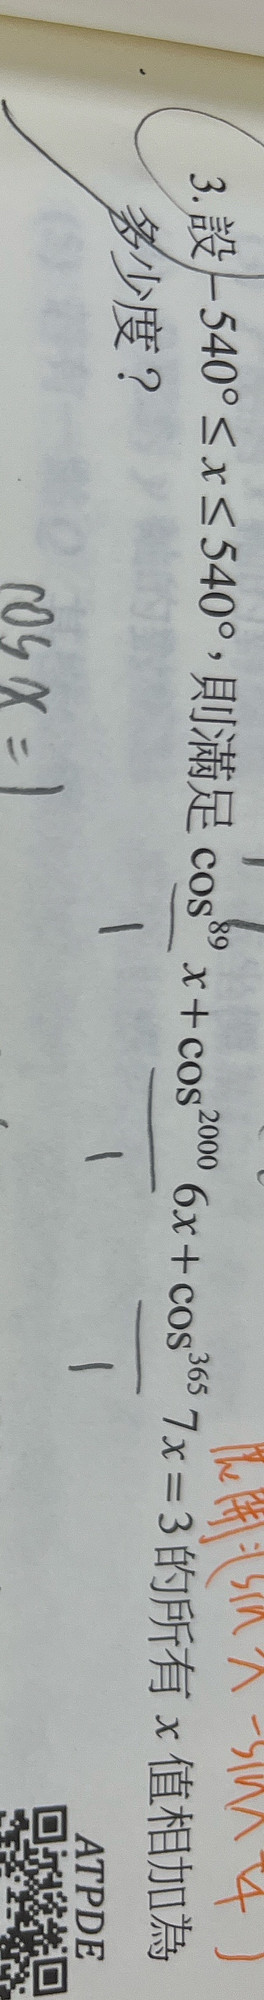 3. 設 −540° ≤ x ≤ 540°，則滿足 cos⁸⁹ x + cos²⁰⁰⁰ 6x + cos³⁶⁵ 7x = 3 的所有 x 值相加為
多少度？
1 1 1
cos x = 1
ATPDE